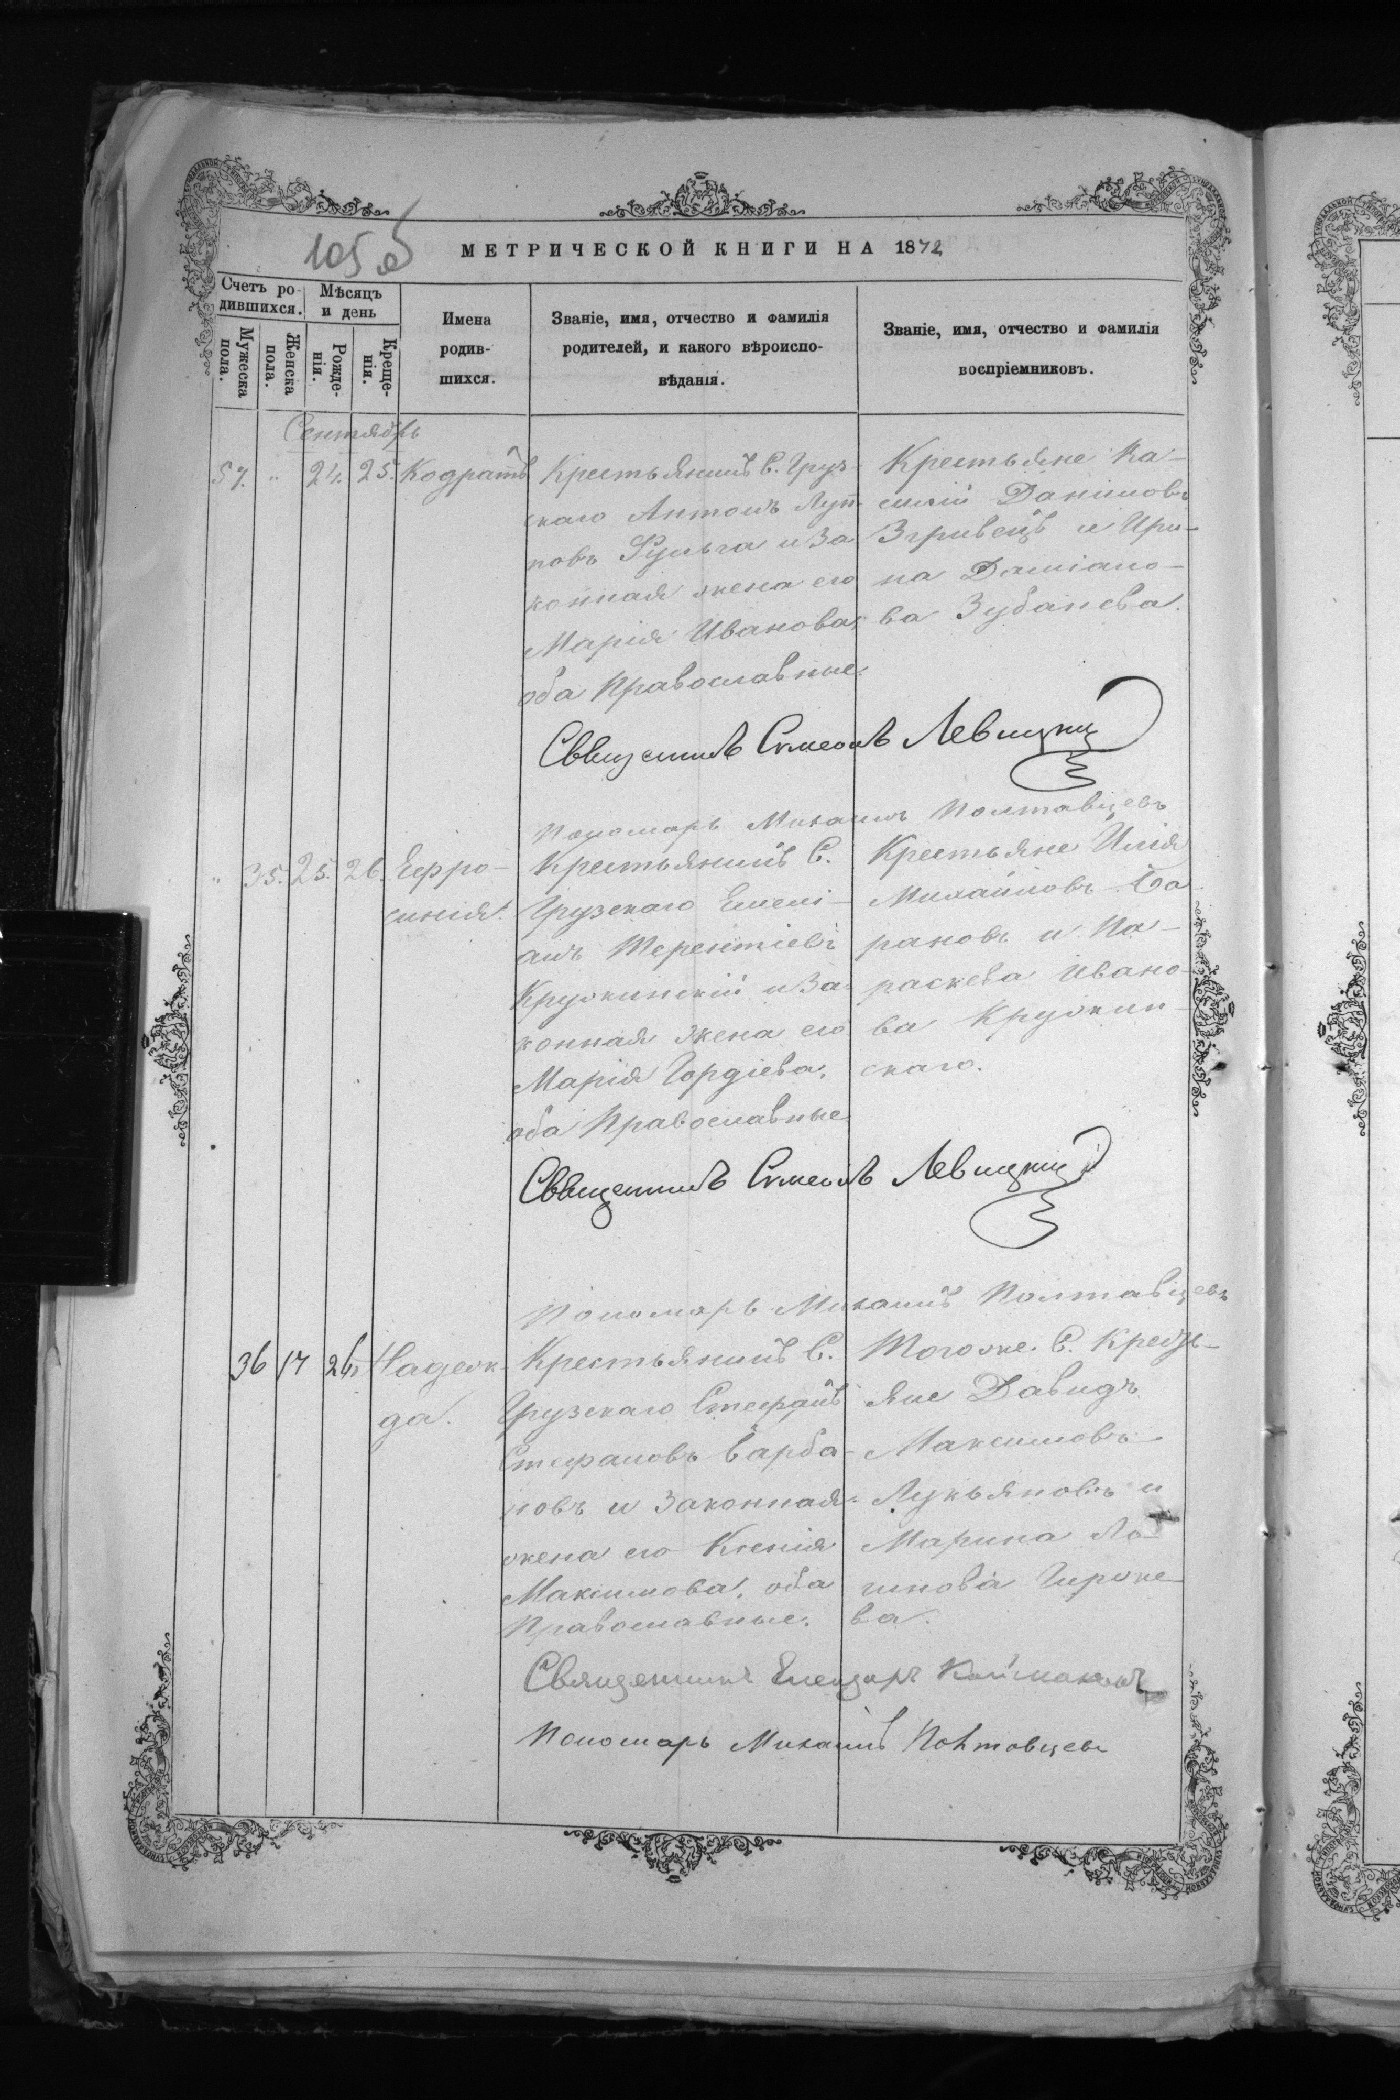 105 об
МЕТРИЧЕСКОЙ КНИГИ НА 1872
Счетъ ро-
дившихся.
Мужеска
пола.
Женска
пола.
Мѣсяцъ
и день
Рожде-
нія.
Креще-
нія.
Имена
родив-
шихся.
Званіе, имя, отчество и фамилія
родителей, и какого вѣроиспо-
вѣданія.
Званіе, имя, отчество и фамилія
воспріемниковъ.
Сентябрь
57. " 21. 25. Кодратъ
Крестьянинъ С. Груз-
скаго Антонъ
новъ Гульга и За
конная жена его
Марія Иванова,
оба Православные.
Крестьяне Ка-
Даниловъ
Згривецъ и Ири-
на Даміано-
ва Зубанева.
Священникъ Симеонъ Левицкій
Пономарь Михаилъ Полтавцевъ
" 35. 25. 26. Ефро-
синія.
Крестьянинъ С.
Грузскаго Емелі-
анъ Терентіевъ
Кружкинскій и За-
конная жена его
Марія Гордіева,
оба Православные
Крестьяне Илія
Михайловъ Ба
рановъ и Па-
раскева Ивано-
ва Кружкин-
скаго.
Священникъ Симеонъ Левицкій
Пономарь Михаилъ Полтавцевъ
36 17 26 Надеж-
да.
Крестьянинъ С.
Грузскаго Стефанъ
Стефановъ Барба-
новъ и Законная
жена его Ксенія
Максимова, оба
Православные.
Тогоже С. Кресть-
яне Давидъ
Максимовъ
Лукьяновъ и
Марина Ло-
гинова Гирже-
ва.
Священникъ Елеазаръ
Пономарь Михаилъ Полтавцевъ